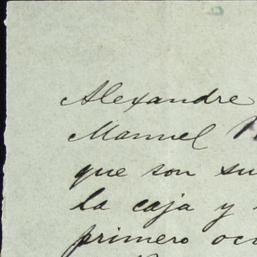 Alexandre
Manuel
que son su
la caja y
primero ocu